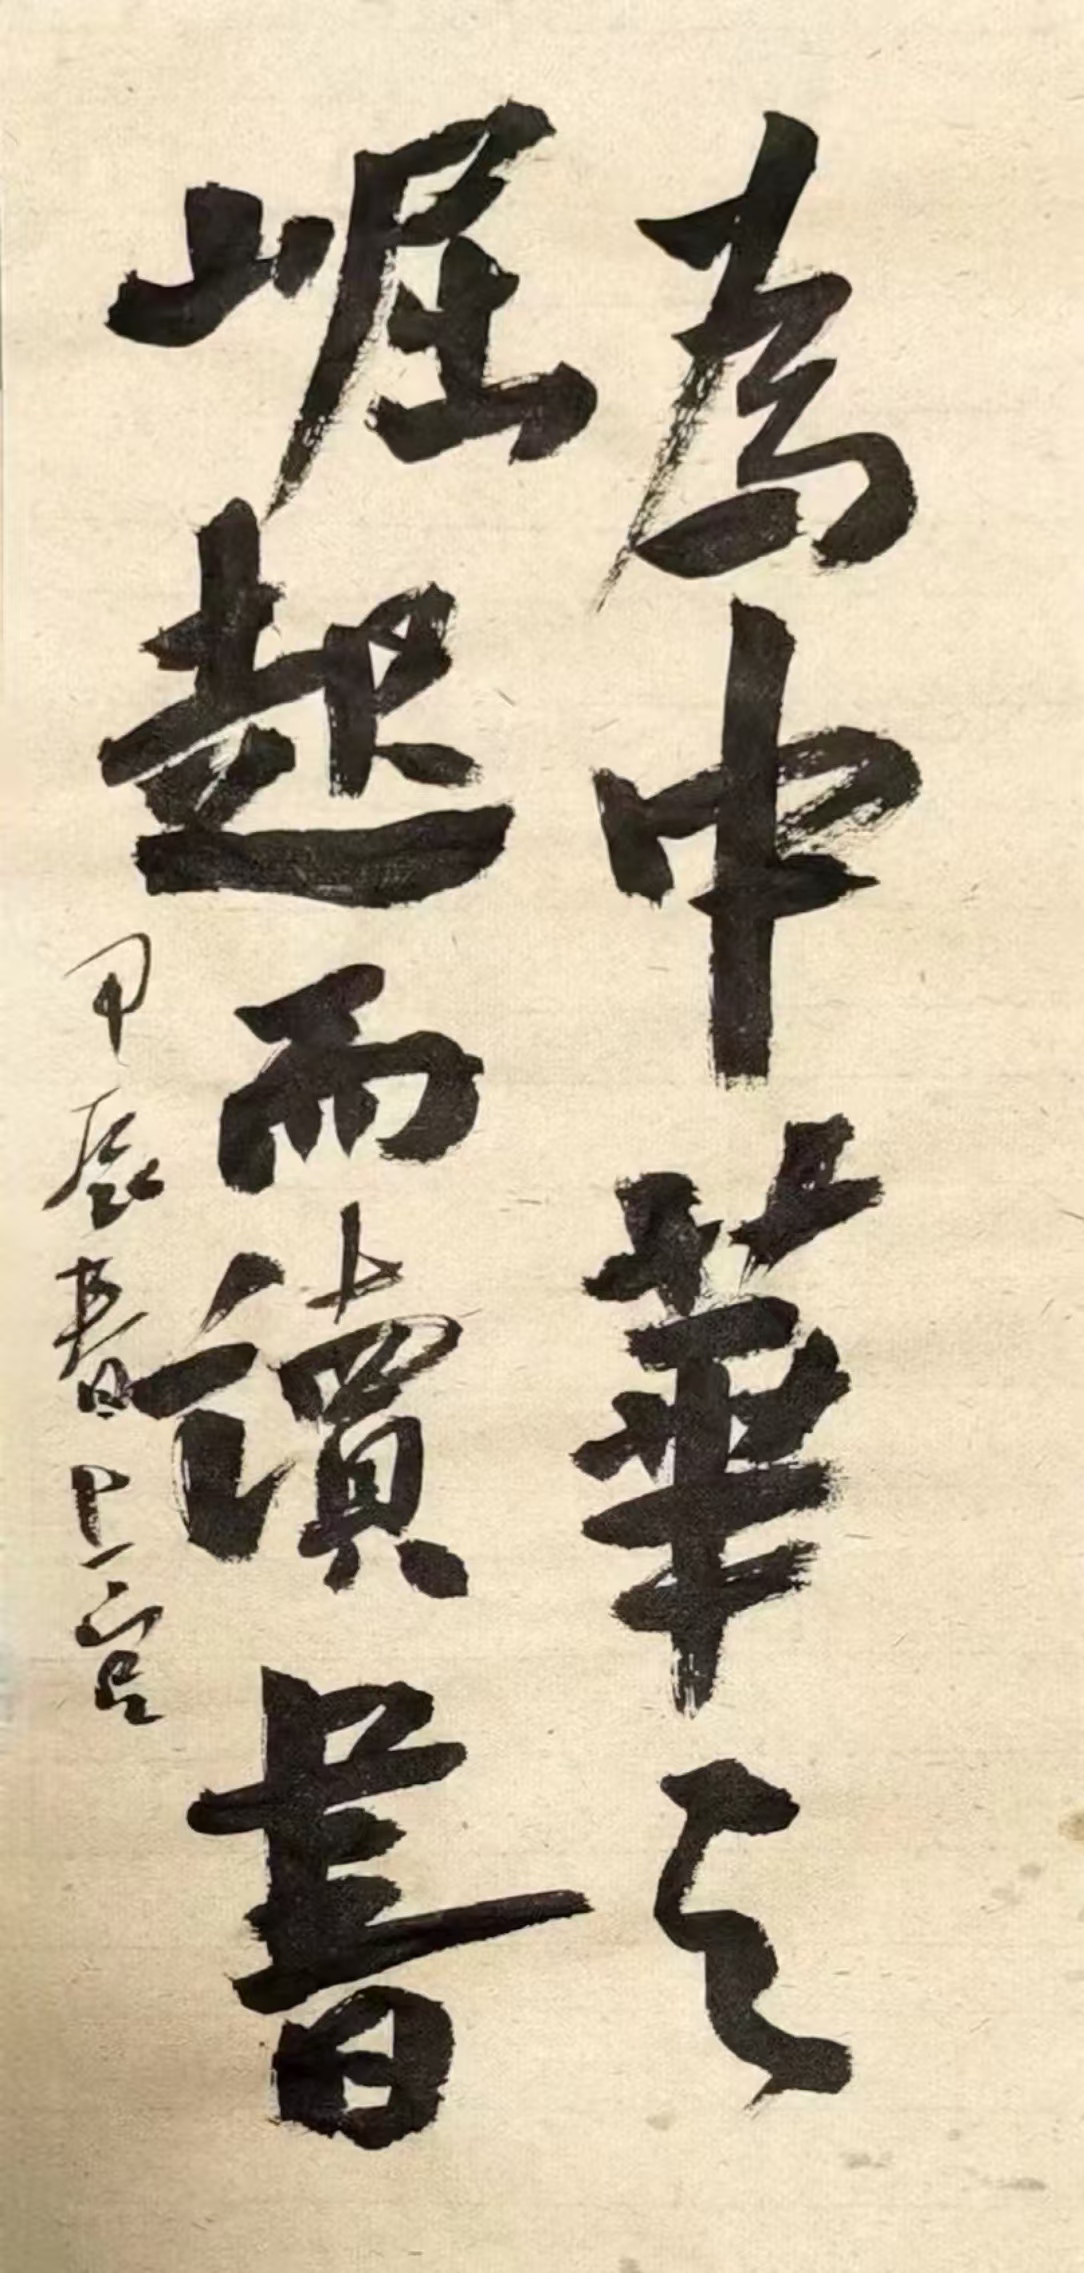 為中華之
崛起而讀書
甲辰春日